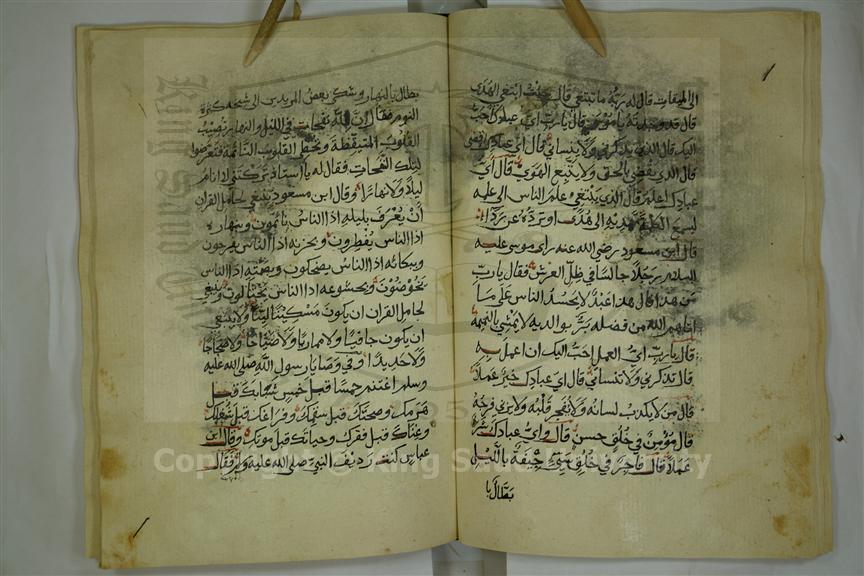 الى الميقات قال له ربه ما تبتغي قال جئت ابتغي الهدى
قال قد وجدته يا موسى قال يا رب اي عبادك احب
اليك قال الذي يذكرني ولا ينساني قال اي عبادك اقضى
قال الذي يقضي بالحق ولا يتبع الهوى قال اي
عبادك اعلم قال الذي يبتغي علم الناس الى علمه
ليسمع الكلمة تهديه الى هدى او ترده عن ردا
قال ابن مسعود رضي الله عنه راى موسى عليه
السلام رجلا جالسا في ظل العرش فقال يا رب
من هذا قال هذا عبد لا يحسد الناس على ما
اتاهم الله من فضله بر بوالديه لا يمشي بالنميمة
قال يا رب اي العمل احب اليك ان اعمل به
قال تذكرني ولا تنساني قال اي عبادك خير عملا
قال من لا يكذب لسانه ولا يفجر قلبه ولا يزني فرجه
قال مؤمن في خلق حسن قال واي عبادك شر
عملا قال فاجر في خلق سيئ جيفة بالليل
بطال با
بطال بالنهار وشكى بعض المريدين الى شيخه كثرة
النوم فقال ان لله نفحات في الليل والنهار تصيب
القلوب المتيقظة وتخطي القلوب النائمة فتعرضوا
لتلك النفحات فقال له يا استاذ تركتني لا انام
ليلا ولا نهارا وقال ابن مسعود ينبغي حامل القران
ان يعرف بليله اذا الناس نائمون وبنهاره
اذا الناس يفطرون وبحزنه اذا الناس يفرحون
وببكائه اذا الناس يضحكون وبصمته اذا الناس
يخوضون وبخشوعه اذا الناس يختالون وينبغي
لحامل القران ان يكون مسكينا لينا ولا ينبغي
ان يكون جافيا ولا مماريا ولا صياحا ولا
ولا حديدا وفي وصايا رسول الله صلى الله عليه
وسلم اغتنم خمسا قبل خمس شبابك قبل
هرمك وصحتك قبل سقمك وفراغك قبل شغلك
وغناك قبل فقرك وحياتك قبل موتك وقال ابن
عباس كنت رديف النبي صلى الله عليه وسلم فقال
King Saud
1957
Copyright © King Saud University